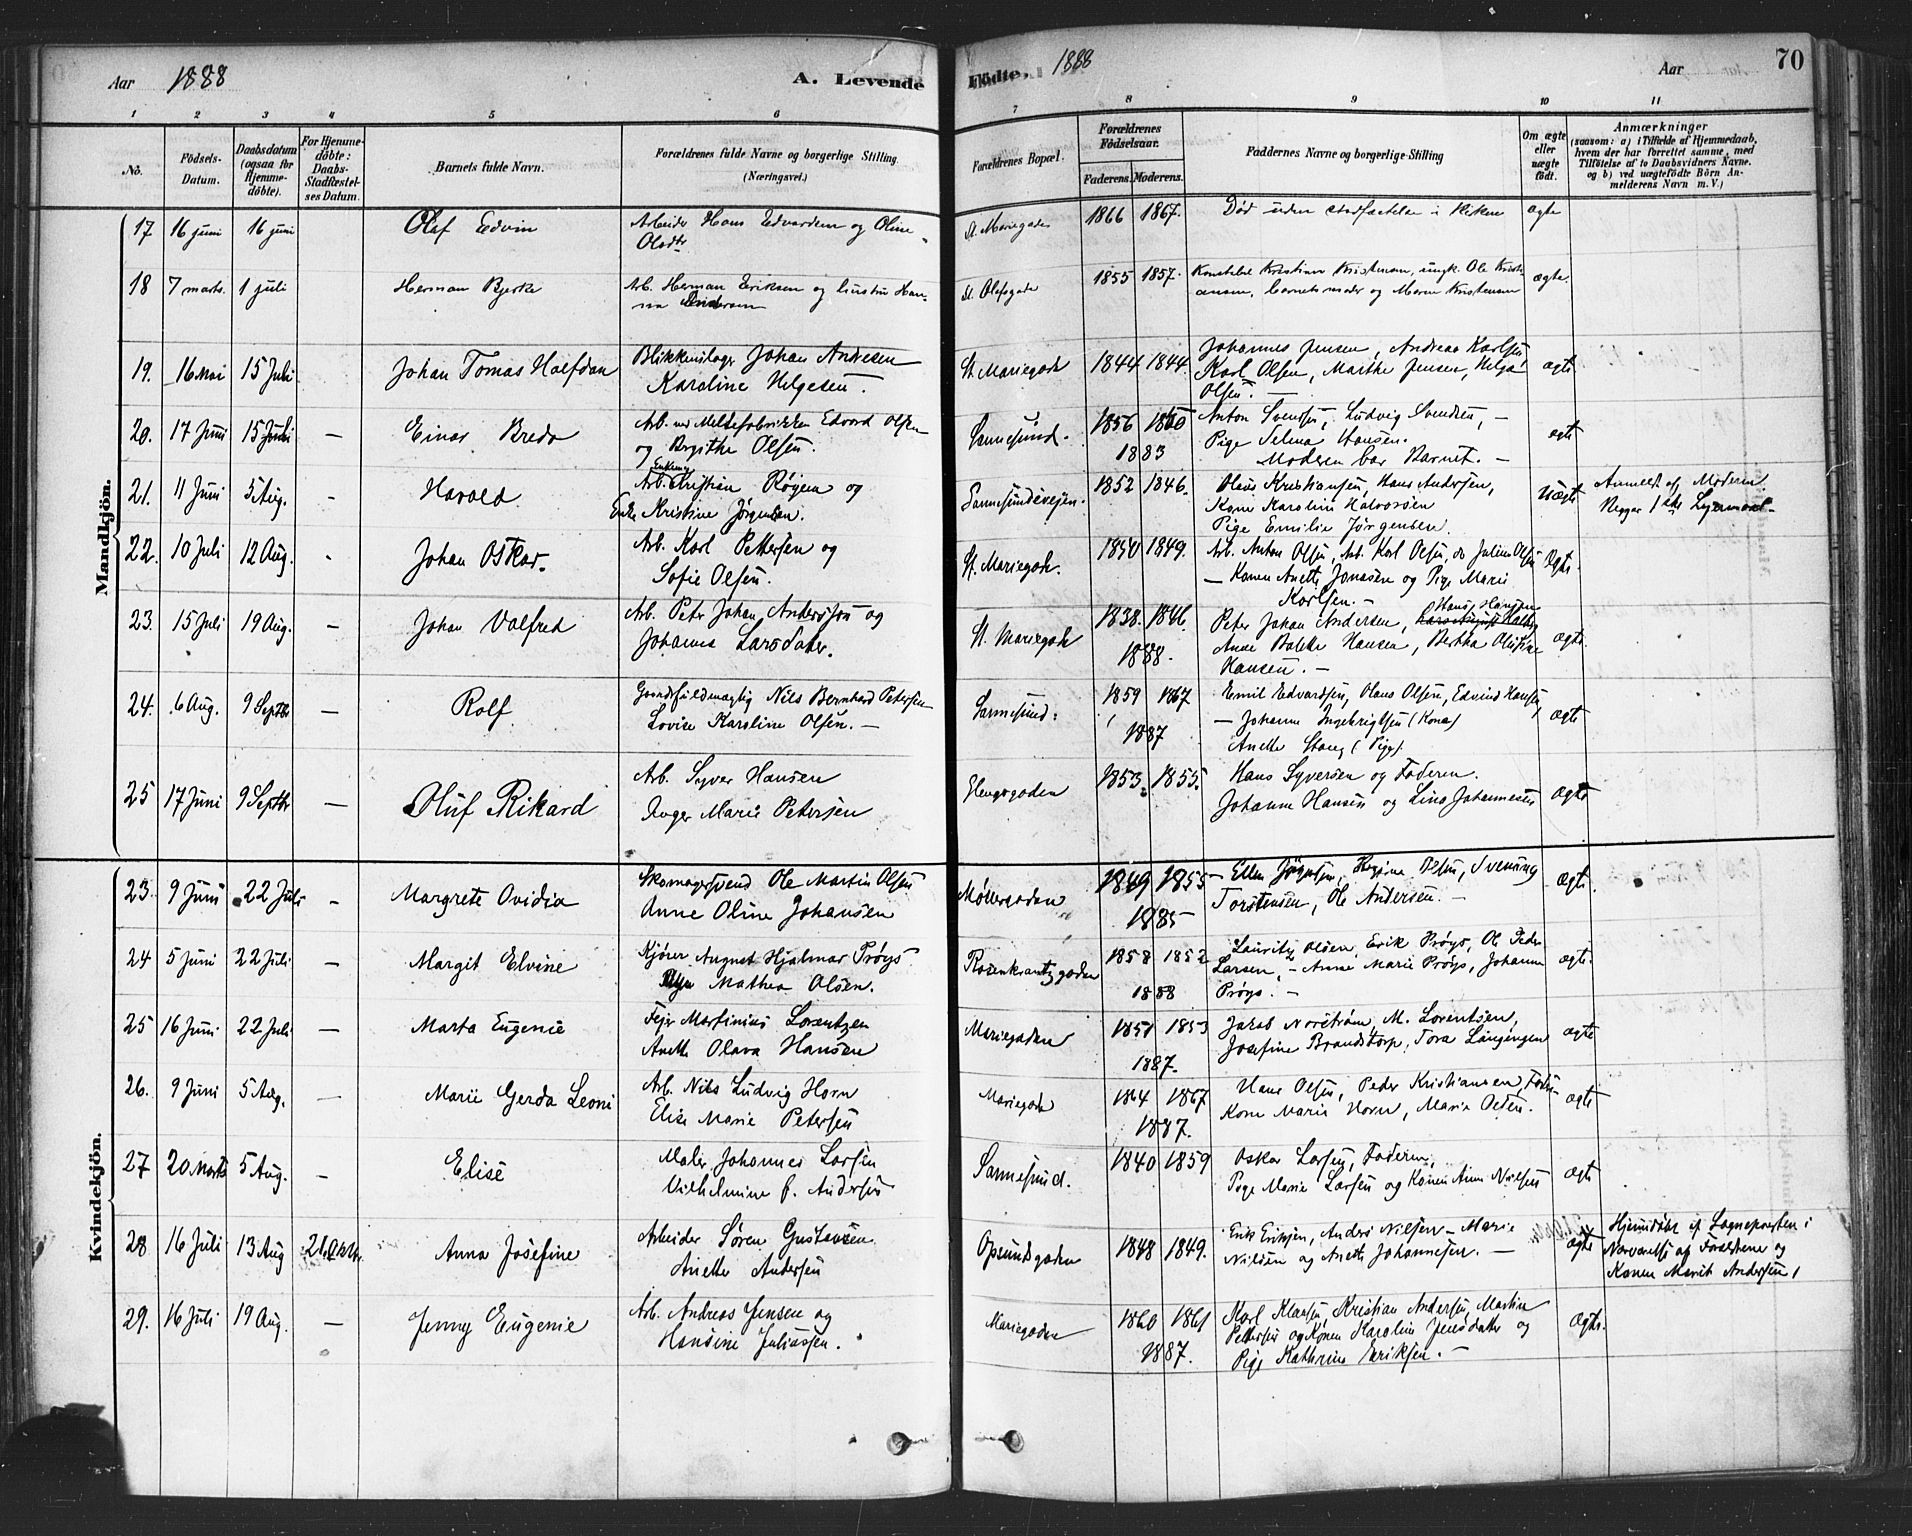 Aar 1888 A. Levende
Födte, 1888 Aar 70
1 2 3 4 5 6 7 8 9 10 11
No.
Födsels-Datum.
Daabsdatum (ogsaa for Hjemme-döbte).
For Hjemme-döbte: Daabs-Stadfæstel-ses Datum.
Barnets fulde Navn.
Forældrenes fulde Navne og borgerlige Stilling. (Næringsvei.)
Forældrenes Bopæl.
Forældrenes Födselsaar.
Faderens. Moderens.
Faddernes Navne og borgerlige Stilling
Om ægte eller uægte födt.
Anmærkninger
(saasom: a) i Tilfælde af Hjemmedaab, hvem der har forrettet samme, med Tilföielse af to Daabsvidners Navne. og b) ved uægtefödte Börn An-melderens Navn m. V.)
Mandkjön.
17 16 juni 16 juni Olaf Edvin Arbeider Hans Edvardsen og Oline Olsdtr St. Mariegade 1866 1867. Död uden stadfæstelse i Kirken ægte
18 7 marts. 1 juli Herman Bjerke Arb. Herman Eriksen og St. Olafsgade 1855 1857. Kristian Kristensen, ungk. Ole Kristi-
ansen, barnets moder og Maren Kristensen ægte
19. 16 Mai 15 Juli Johan Tomas Halfdan Blikkenslager Johan Andresen
Karoline Helgesen. St. Mariegade 1844 1844. Johannes Jensen, Andreas Karlsen
Karl Olsen, Marthe Jensen, Helga
Olsen. — ægte
20. 17 Juni 15 Juli — Einar Breda Arb. ved Meltefabrikken Edvard Olsen
og Birgithe Olsen. Sannesund. 1856 1860 1883 Anton Svendsen, Ludvig Svendsen, —
Pige Selma Hansen.
Moderen bar Barnet. — ægte
21. 11 Juni 5 Aug. - Harald. Enkem. Arb. Kristian Røgen og
Enke Kristine Jørgensen. Sannesundsveien. 1852 1846. Olaus Kristiansen, Hans Andersen,
Kone Karoline Halvorsen
Pige Emilie Jørgensen uægte Anmeldt af Moderen
Begges 1ste Leiermaal.
22. 10 Juli 12 Aug. - Johan Oskar. Arb. Karl Pettersen og
Sofie Olsen. St. Mariegade. 1850 1849. Arb. Anton Olsen, Arb. Karl Olsen, do Julius Olsen
— Konen Anette Jonassen og Pige Marie
Karlsen. — ægte.
23. 15 Juli 19 Aug. — Johan Valfred Arb. Peter Johan Andersson og
Johanna Larsdater. St. Mariegade 1838. 1846. 1888. Peter Johan Andersen, Hans Hansen
Anne Bakke Hansen, Bertha Olufine
Hansen. — ægte.
24. 6 Aug. 9 Septbr — Rolf. Grundfuldmægtig Nils Bernhard Petersen
Lovise Karoline Olsen. — Sannesund. 1859 1867 1887 Emil Edvardsen, Olaus Olsen, Edvind Hansen,
— Johanne Ingebrigtsen (Kone)
Anette Stang (Pige). ægte
25 17 Juni 9 Septbr — Oluf Rikard Arb. Syver Hansen
Inger Marie Petersen Glengsgaden 1853. 1855. Hans Syversen og Faderen.
Johanne Hansen og Lina Johannesen ægte
Kvindekjön.
23. 9 Juni 22 Juli — Margrete Ovidia Skomagersvend Ole Martin Olsen
Anne Oline Johansen Møllergaden 1849 1855 1885 — Ellen Jørgensen, Regine Olsen, Svening
Torstensen, Ole Andersen. — ægte.
24 5 Juni 22 Juli — Margit Elvine Kjører August Hjalmar Prøys
Mathea Olsen. Rosenkrantzgaden 1858 1852 1888 Lauritz Olsen, Erik Prøys, Ole Peder
Larsen, — Anne Marie Prøys, Johanne
Prøys. — ægte.
25 16 Juni 22 Juli — Marta Eugenie Feier Martinius Lorentzen
Anette Olava Hansen Mariegaden 1851 1853 1887. Jakob Norström, M. Lorentsen,
Josefine Brandstorp, Tora Langengen ægte
26. 9 Juni 5 Aug. — Marie Gerda Leoni Arb. Nils Ludvig Horn
Elise Marie Petersen Mariegade 1864 1867 1887. Hans Olsen, Peder Kristiansen,
Kone Marie Horn, Marie Olsen. ægte
27 20 Marts 5 Aug. — Elise Maler Johannes Larsen
Vilhelmine f. Andersen Sannesund. 1840 1859 Oskar Larsen, Faderen,
Pige Marie Larsen og Konen Anne Nilsen ægte
28 16 Juli 13 Aug 21 Oktbr. Anna Josefine Arbeider Søren Gustavsen
Anette Andersen Opsundsgaden 1848 1849. Erik Eriksen, Anders Nilsen — Marie
Nilsen og Anette Johannesen. — ægte Hjemdøbt af Sognepresten i
Nærværelse af Forældrene og
Konen Marit Andersen
29. 16 Juli 19 Aug. — Jenny Eugenie Arb. Andreas Jensen og
Hansine Juliussen. Mariegaden 1860 1861 1887. Karl Klausen, Kristian Andersen, Martin
Pettersen og Konen Karoline Jensdatter og
Pige Kathrine Eriksen. — ægte.